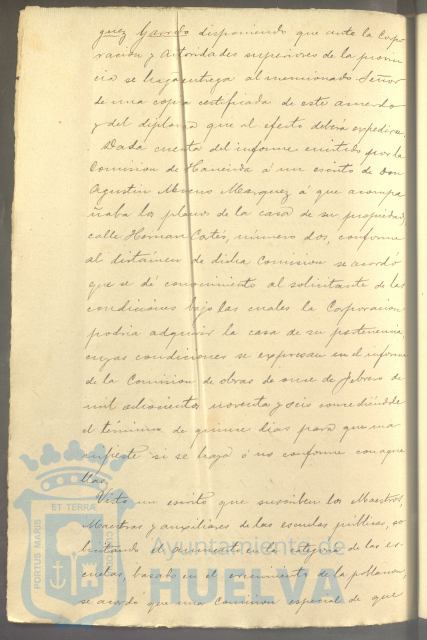 guez Garrido disponiendo que ante la Corpo
ración y Autoridades superiores de la provin
cia se haga entrega al mencionado Señor
de una copia certificada de este acuerdo
y del diploma que al efecto deberá expedirse.
Dada cuenta del informe emitido por la
Comision de Hacienda á un escrito de Don
Agustin Moreno Marquez á que acompa
ñaba los planos de la casa de su propiedad
calle Hernan Cortés, número dos, conforme
al dictámen de dicha Comision se acordó
que se dé conocimiento al solicitante de las
condiciones bajo las cuales la Corporacion
podria adquirir la casa de su pertenencia
cuyas condiciones se expresan en el informe
de la Comision de obras de once de febrero de
mil ochocientos noventa y seis concediéndole
el término de quince dias para que ma
nifieste si se haya ó no conforme con aque
llas.
Visto un escrito que suscriben los Maestros,
Maestras y auxiliares de las escuelas públicas, so
licitando el aumento en la categoria de las es
cuelas, basado en el crecimiento de la poblacion,
se acordó que una Comision especial de que
PORTUS MARIS ET TERRAE CUSTODIA
Ayuntamiento de
HUELVA